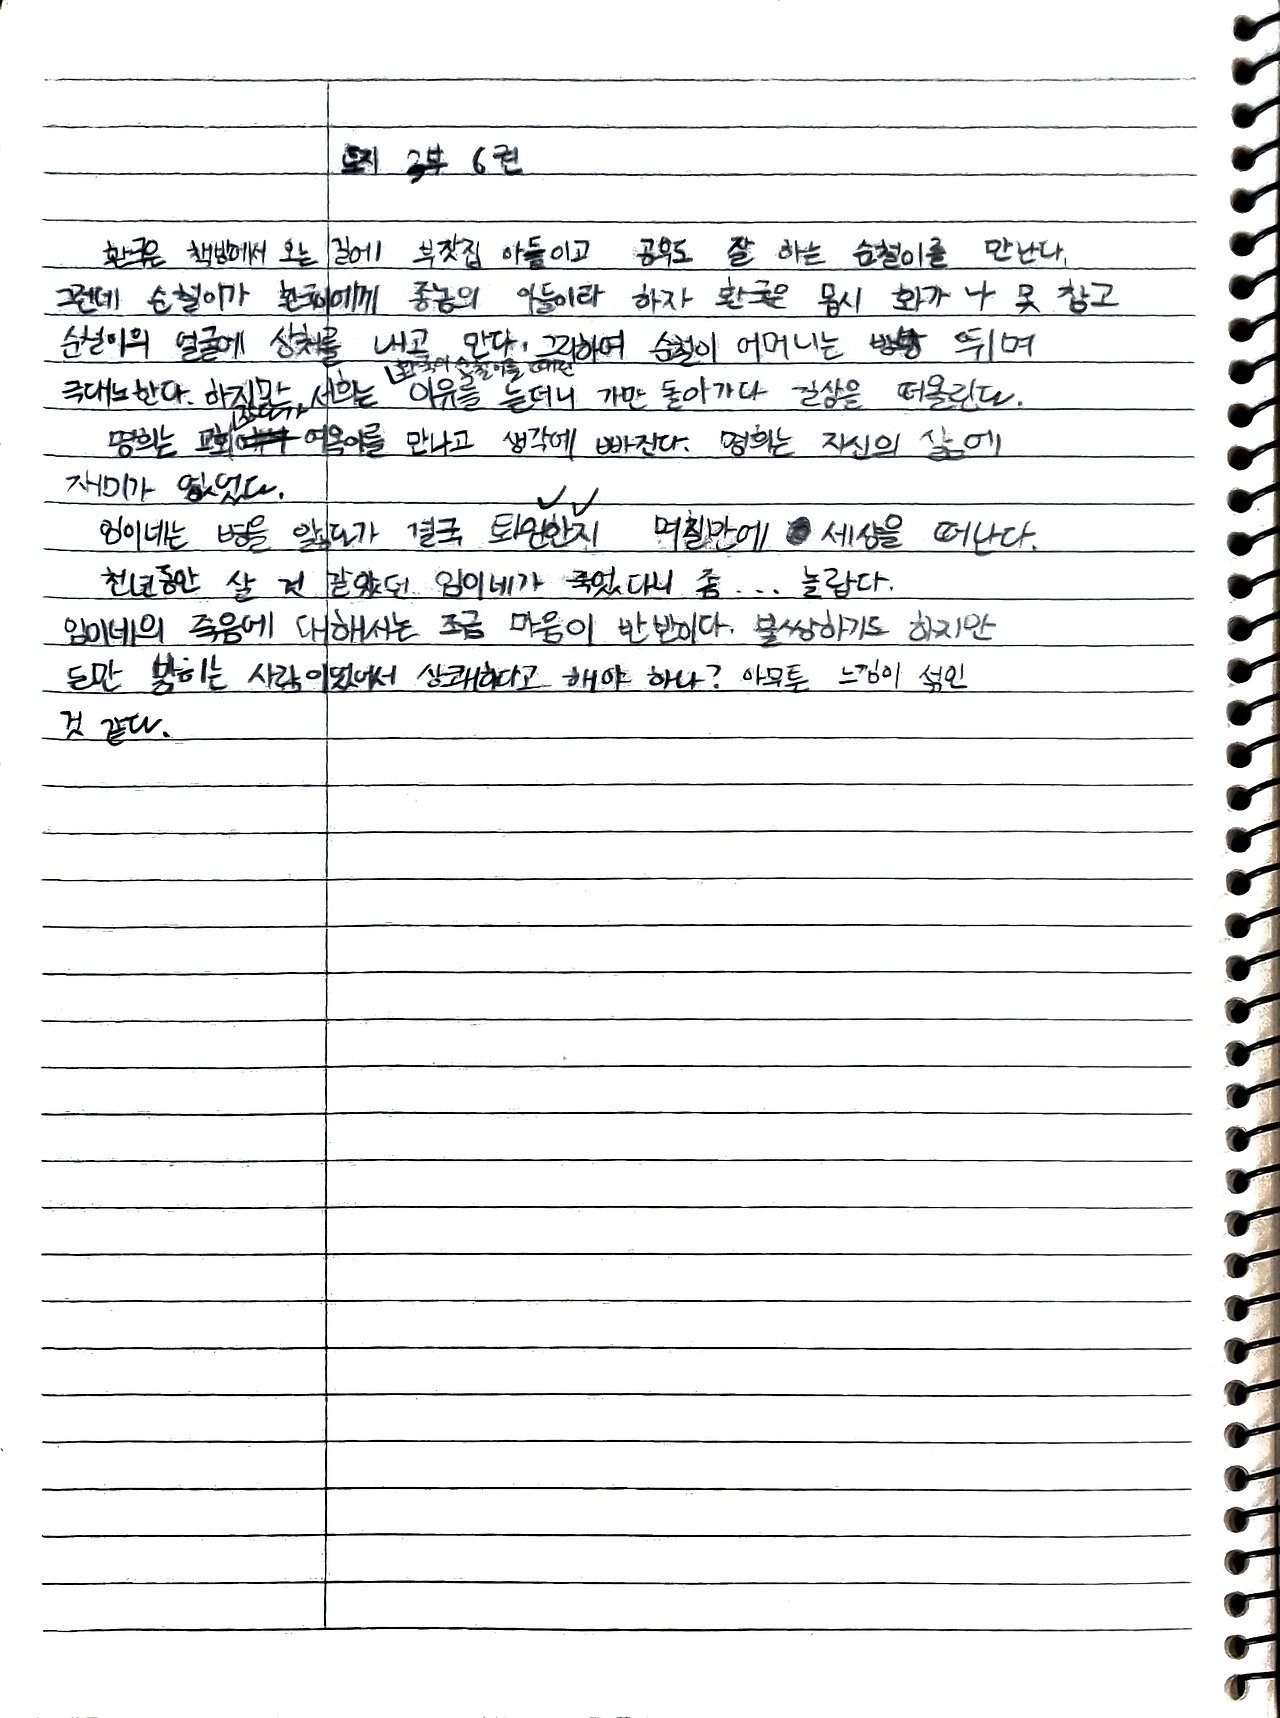 토지 3부 6권
환국은 책방에서 오는 길에 부잣집 아들이고 공부도 잘 하는 순철이를 만난다.
그런데 순철이가 환국이에게 종놈의 아들이라 하자 환국은 몹시 화가 나 못 참고
순철이의 얼굴에 상처를 내고 만다. 그리하여 순철이 어머니는 방방 뛰며
환국이 순철이를 때린
극대노한다. 하지만 서희는 이유를 듣더니 가만 돌아가다 길상을 떠올린다.
갔다가
명희는 교회 여옥이를 만나고 생각에 빠진다. 명희는 자신의 삶에
재미가 없었다.
임이네는 병을 앓다가 결국 퇴원한지 며칠만에 세상을 떠난다.
천년동안 살 것 같았던 임이네가 죽었다니 좀... 놀랍다.
임이네의 죽음에 대해서는 조금 마음이 반반이다. 불쌍하기도 하지만
돈만 밝히는 사람이었어서 상쾌하다고 해야 하나? 아무튼 느낌이 섞인
것 같다.